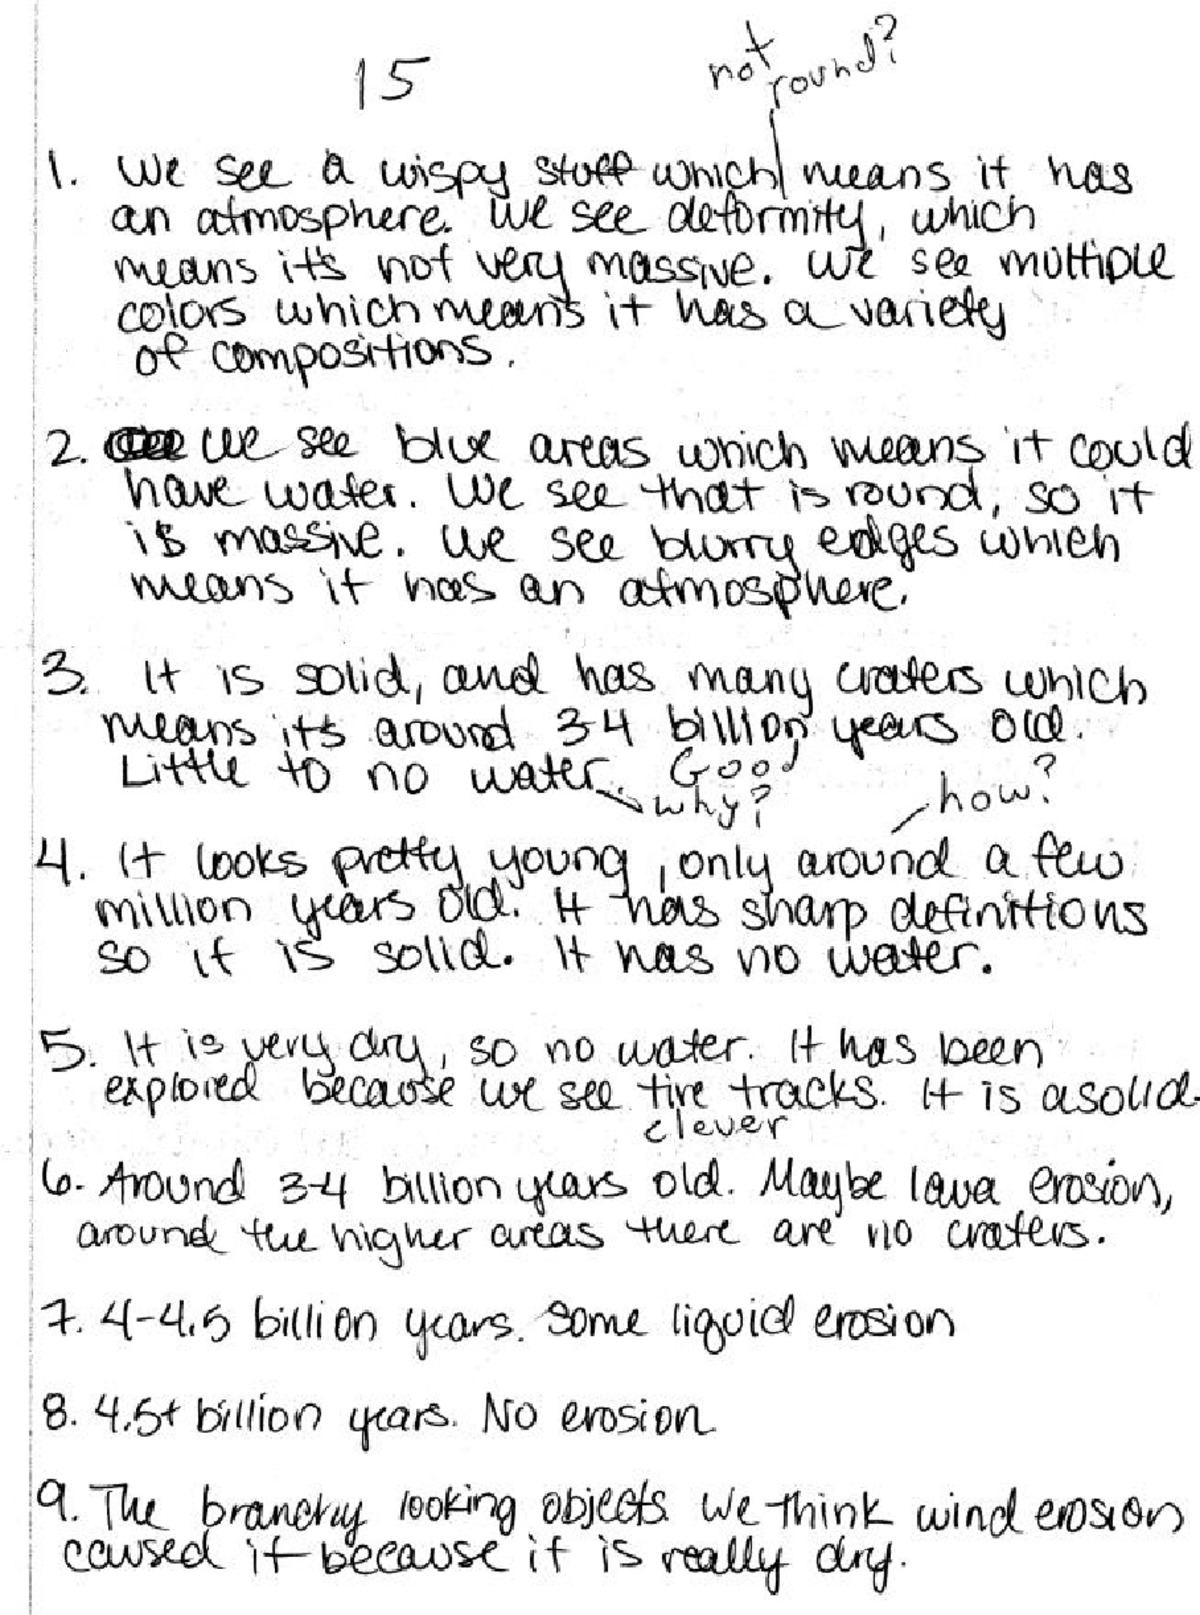 15
not
round?
1. We see a wispy stuff which means it has
an atmosphere. We see deformity, which
means it's not very massive. We see multiple
colors which means it has a variety
of compositions.
2. We see blue areas which means it could
have water. We see that is round, so it
is massive. We see blurry edges which
means it has an atmosphere.
3. It is solid, and has many craters which
means its around 3-4 billion years old.
Little to no water. Good
why? how?
4. It looks pretty young, only around a few
million years old. It has sharp definitions
so it is solid. It has no water.
5. It is very dry, so no water. It has been
explored because we see tire tracks. It is a solid.
clever
6. Around 3-4 billion years old. Maybe lava erosion,
around the higher areas there are no craters.
7. 4-4.5 billion years. Some liquid erosion
8. 4.5+ billion years. No erosion.
9. The branchy looking objects. We think wind erosion
caused it because it is really dry.